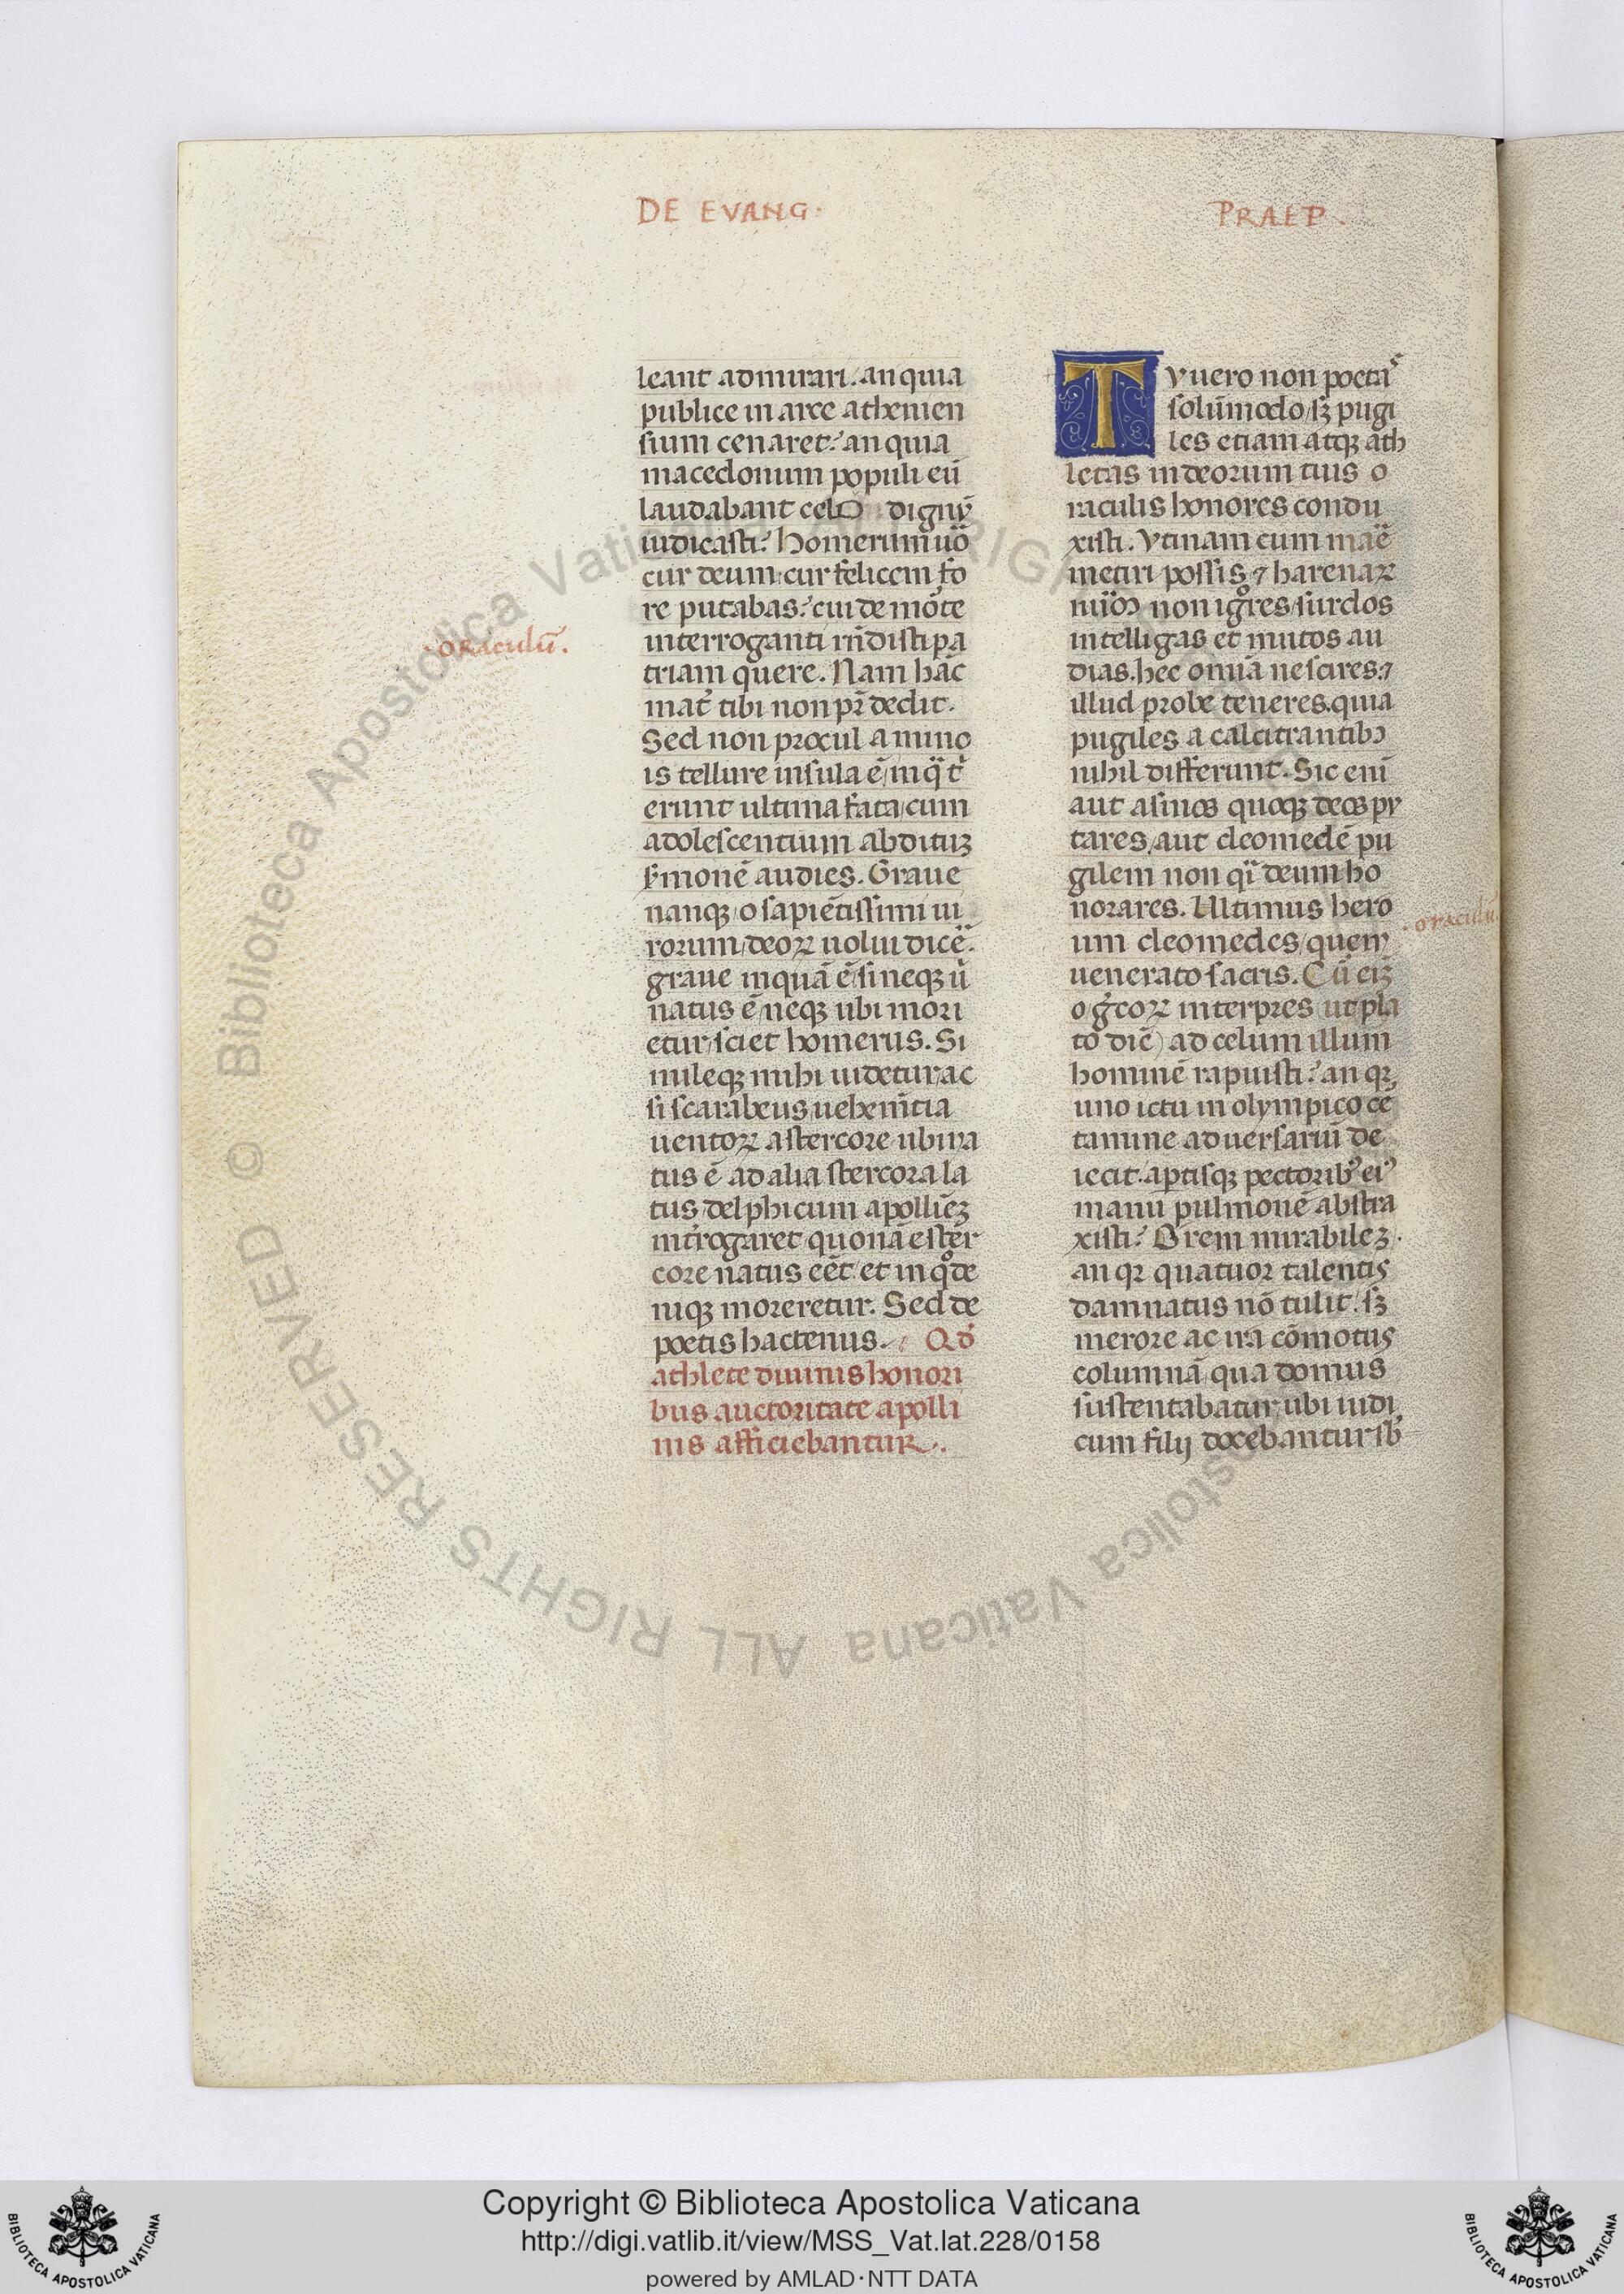 DE EVANG·
PRAEP·
leant admirari. an quia
publice in arce athenien
sium cenaret? an quia
macedonum populi eū
laudabant celo dignū
iudicasti? Homerum uo
cur deum: cur felicem fo
re putabas? cui de mōte
interroganti rn̄disti pa
triam quere. Nam hāc
mat̄ tibi non pr̄ dedit.
Sed non procul a mino
is tellure insula ē in q̄ t̄
erunt ultima fata cum
adolescentium abdituꝫ
ẜmonē audies. Graue
nanqꝫ o sapiētissimi ui
rorum deoꝝ uolui dicē.
graue inquā ē si neqꝫ ū
natus ē neqꝫ ubi mori
etur sciet homerus. Si
mileqꝫ mihi uidetur ac
si scarabeus uehem̄tia
uentoꝝ a stercore ubi na
tus ē ad alia stercora la
tus delphicum apollīeꝫ
int̄rogaret quonā e ster
core natus eēt et in qͦ de
niqꝫ moreretur. Sed de
poetis hactenus. Qđ
athlete diuinis honori
bus auctoritate apolli
nis afficiebantur.
·oraculū.
Tv uero non poetas
solūmodo sꝫ pugi
les etiam atqꝫ ath
letas in deorum tuis o
raculis honores condu
xisti. Vtinam cum mare
metiri possis ⁊ harenaꝝ
nūꝫ non igͦres surdos
intelligas et mutos au
dias. hec omīa nescires ⁊
illud probe teneres. quia
pugiles a calcitrantibꝰ
nihil differunt. Sic enī
aut asinos quoqꝫ deos pu
tares aut cleomedē pu
gilem non qͥ deum ho
norares. Ultimus hero
um cleomedes quem
uenerato sacris. Cū eiꝫ
o ḡcoꝝ interpres ut pla
to diē) ad celum illum
hominē rapuisti? an qꝛ
uno ictu in olympico ce
tamine aduersariū de
iecit. aptisqꝫ pectoribꝰ eiꝰ
manu pulmonē abstra
xisti? O rem mirabileꝫ.
an qꝛ quatuor talentis
damnatus nō tulit. sꝫ
merore ac ira cōmotus
columnā qua domus
sustentabatur ubi iudi
cum filij docebantur sb̄
·oraculū
Copyright © Biblioteca Apostolica Vaticana
http://digi.vatlib.it/view/MSS_Vat.lat.228/0158
powered by AMLAD·NTT DATA
BIBLIOTECA APOSTOLICA VATICANA
BIBLIOTECA APOSTOLICA VATICANA
© Biblioteca Apostolica Vaticana ALL RIGHTS RESERVED